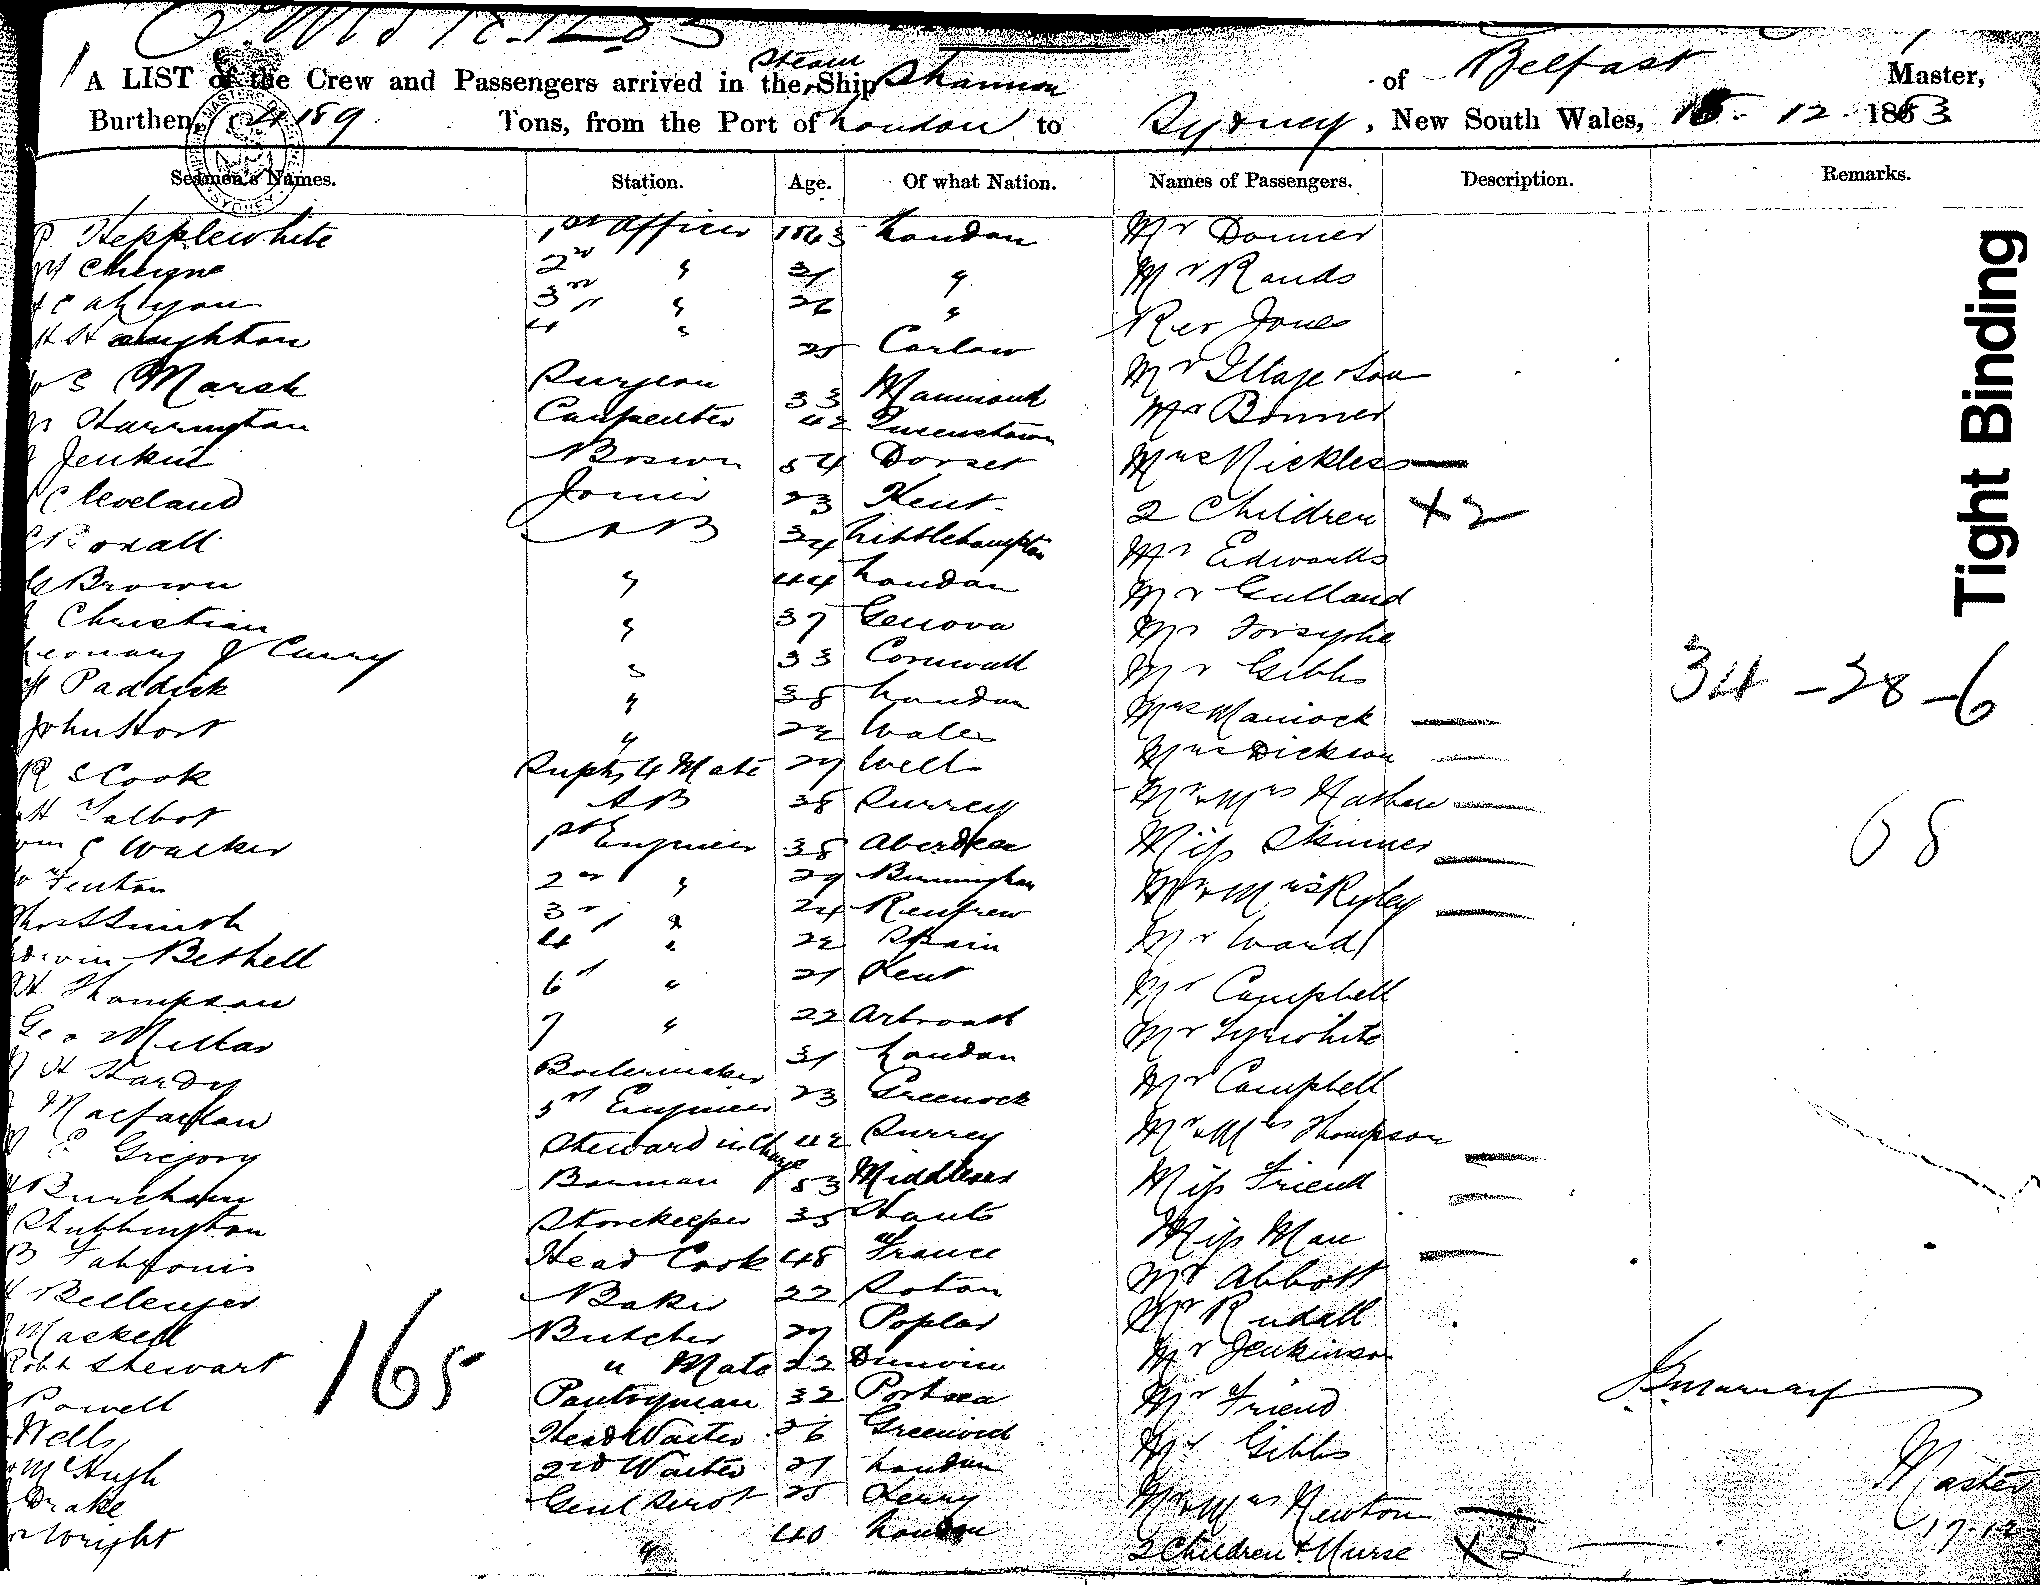 A LIST of the Crew and Passengers arrived in the Steam Ship Shannon of Belfast Master,
Burthen, 4189 Tons, from the Port of London to Sydney, New South Wales, 15. 12. 1883
Seamen's Names. Station. Age. Of what Nation. Names of Passengers. Description. Remarks.
Hepplewhite 1st Officer London Mr Donner
Cheyne 2nd " 31 " Mr Rands
3rd " 26 " Rev Jones
4 " 25 Carlow Mr Illage & Son
Marsh Surgeon 33 Mr Bonner
Harrington Carpenter 42 Queenstown
Jenkin Boswn 54 Dorset Mrs Nickless
Cleveland Joiner 23 Kent 2 Children +2
Roxall AB 34 Littlehampton Mr Edwards
Brown " 44 London Mr Gulland
Christian " 37 Genova Mr Forsythe
J Curry " 33 Cornwall Mr Gibbs
Paddick " 38 London Mrs
34 - 28 - 6
John Hort " 22 Wales Mrs Dickson
R S Cook Supty 4 Mate 29 Well Mr & Mrs Nathan
H Talbot AB 38 Surrey Miss Skinner
68
Walker 1st Engineer 38 Aberdeen
Fenton 2nd " 29 Birmingham Mr & Mrs Ryley
Smith 3rd " 24 Renfrew Mr Ward
Bethell 4 " 22 Spain
H Thompson 6th " 21 Kent Mr Campbell
Geo Millar 7 " 22 Arbroath Mr Tyrwhite
H Hardy Boilermaker 31 London Mr Campbell
Macfarlan 5th Engineer 23 Greenock Mr & Mrs Thompson
E Gregory Steward in Charge 42 Surrey Miss Friend
Burcham Barman 53 Middlesex Miss Man
Stubbington Storekeeper 35 Hants Mr Abbott
Head Cook 48 France Mr Rudall
Bellenger Baker 22 Soton Mr Jenkinson
Maskell Butcher 29 Poplar Mr Friend
165
Robt Stewart " Mate 22 Mr Gibbs
Powell Pantryman 32 Portsea
Wells Head Waiter 26 Greenwich
McHugh 2nd Waiter 21 London Mr & Mrs Newton
Drake Genl Servt 25 Derry 2 Children & Nurse X2
Wright " 40 London
Master
17.12
Tight Binding